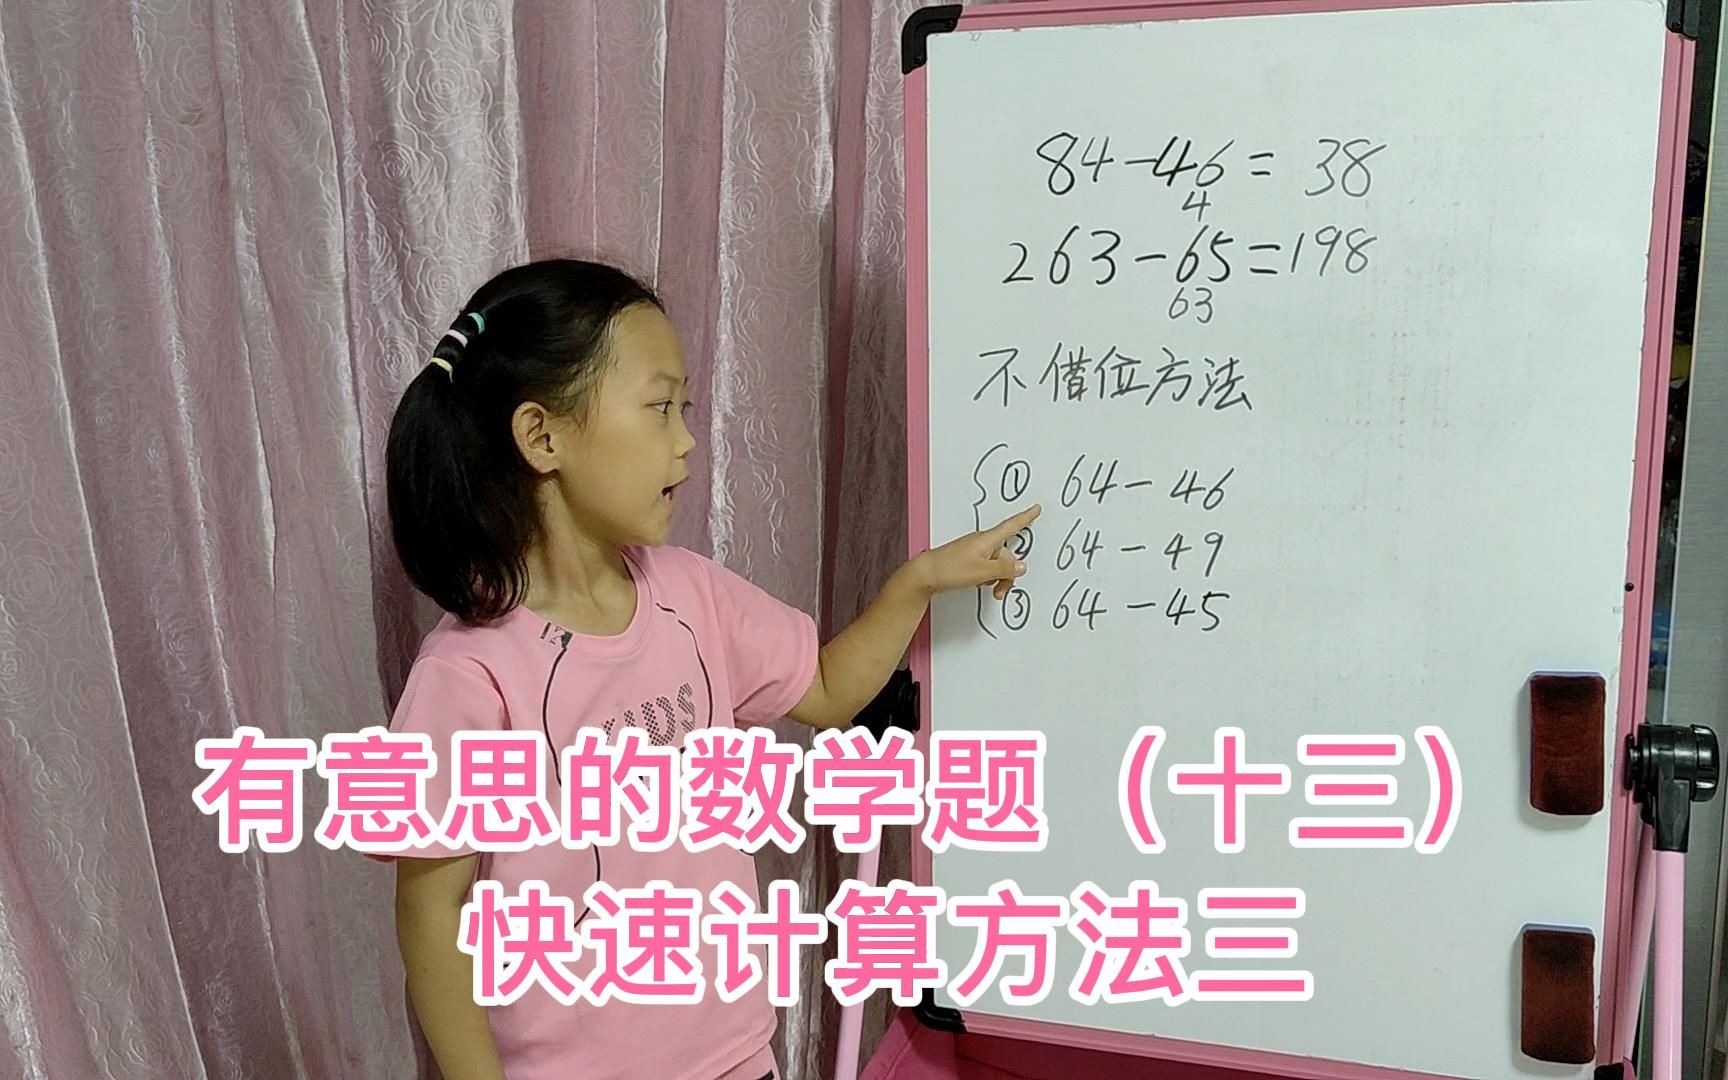 84-46=38
4
263-65=198
63
不借位方法
① 64-46
② 64-49
③ 64-45
KIDS
有意思的数学题（十三）
快速计算方法三